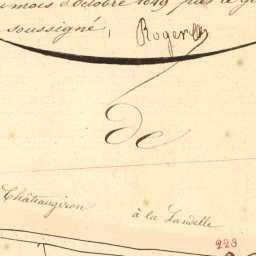 mois d'Octobre 1819 par le
soussigné,
Roger
de
Châteaugiron
à la Landelle
223